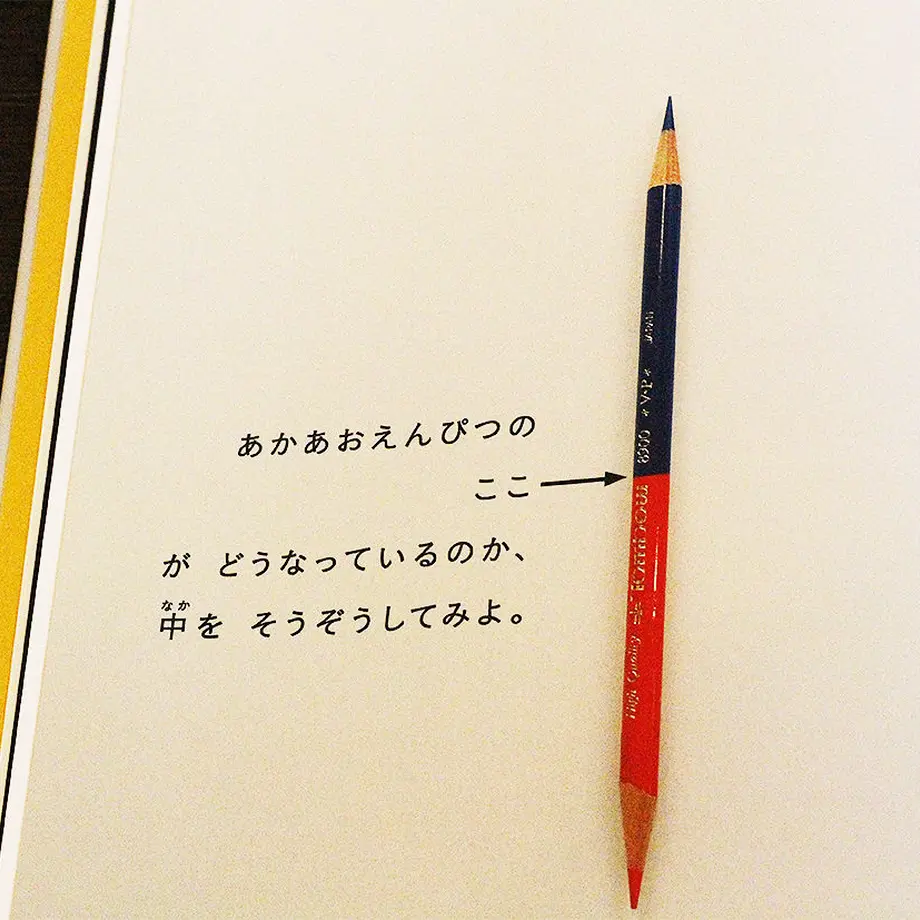 あかあおえんぴつの
ここ
が どうなっているのか、
中を そうぞうしてみよ。
なか
High Quality Tombow 8900 *V・P* JAPAN